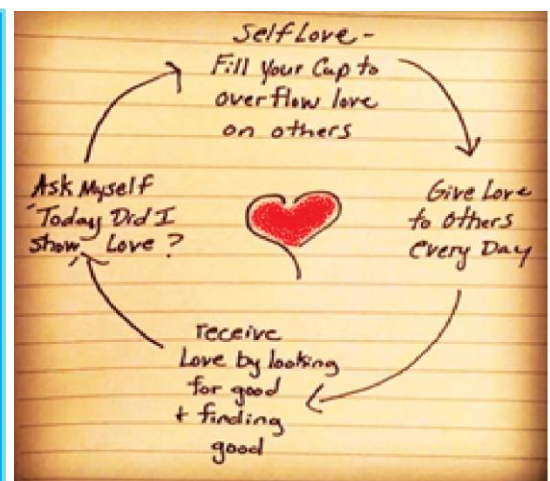 Self Love -
Fill Your Cup to
overflow love
on others
Give Love
to Others
Every Day
receive
Love by looking
for good
+ finding
good
Ask Myself
"Today Did I
show Love ?